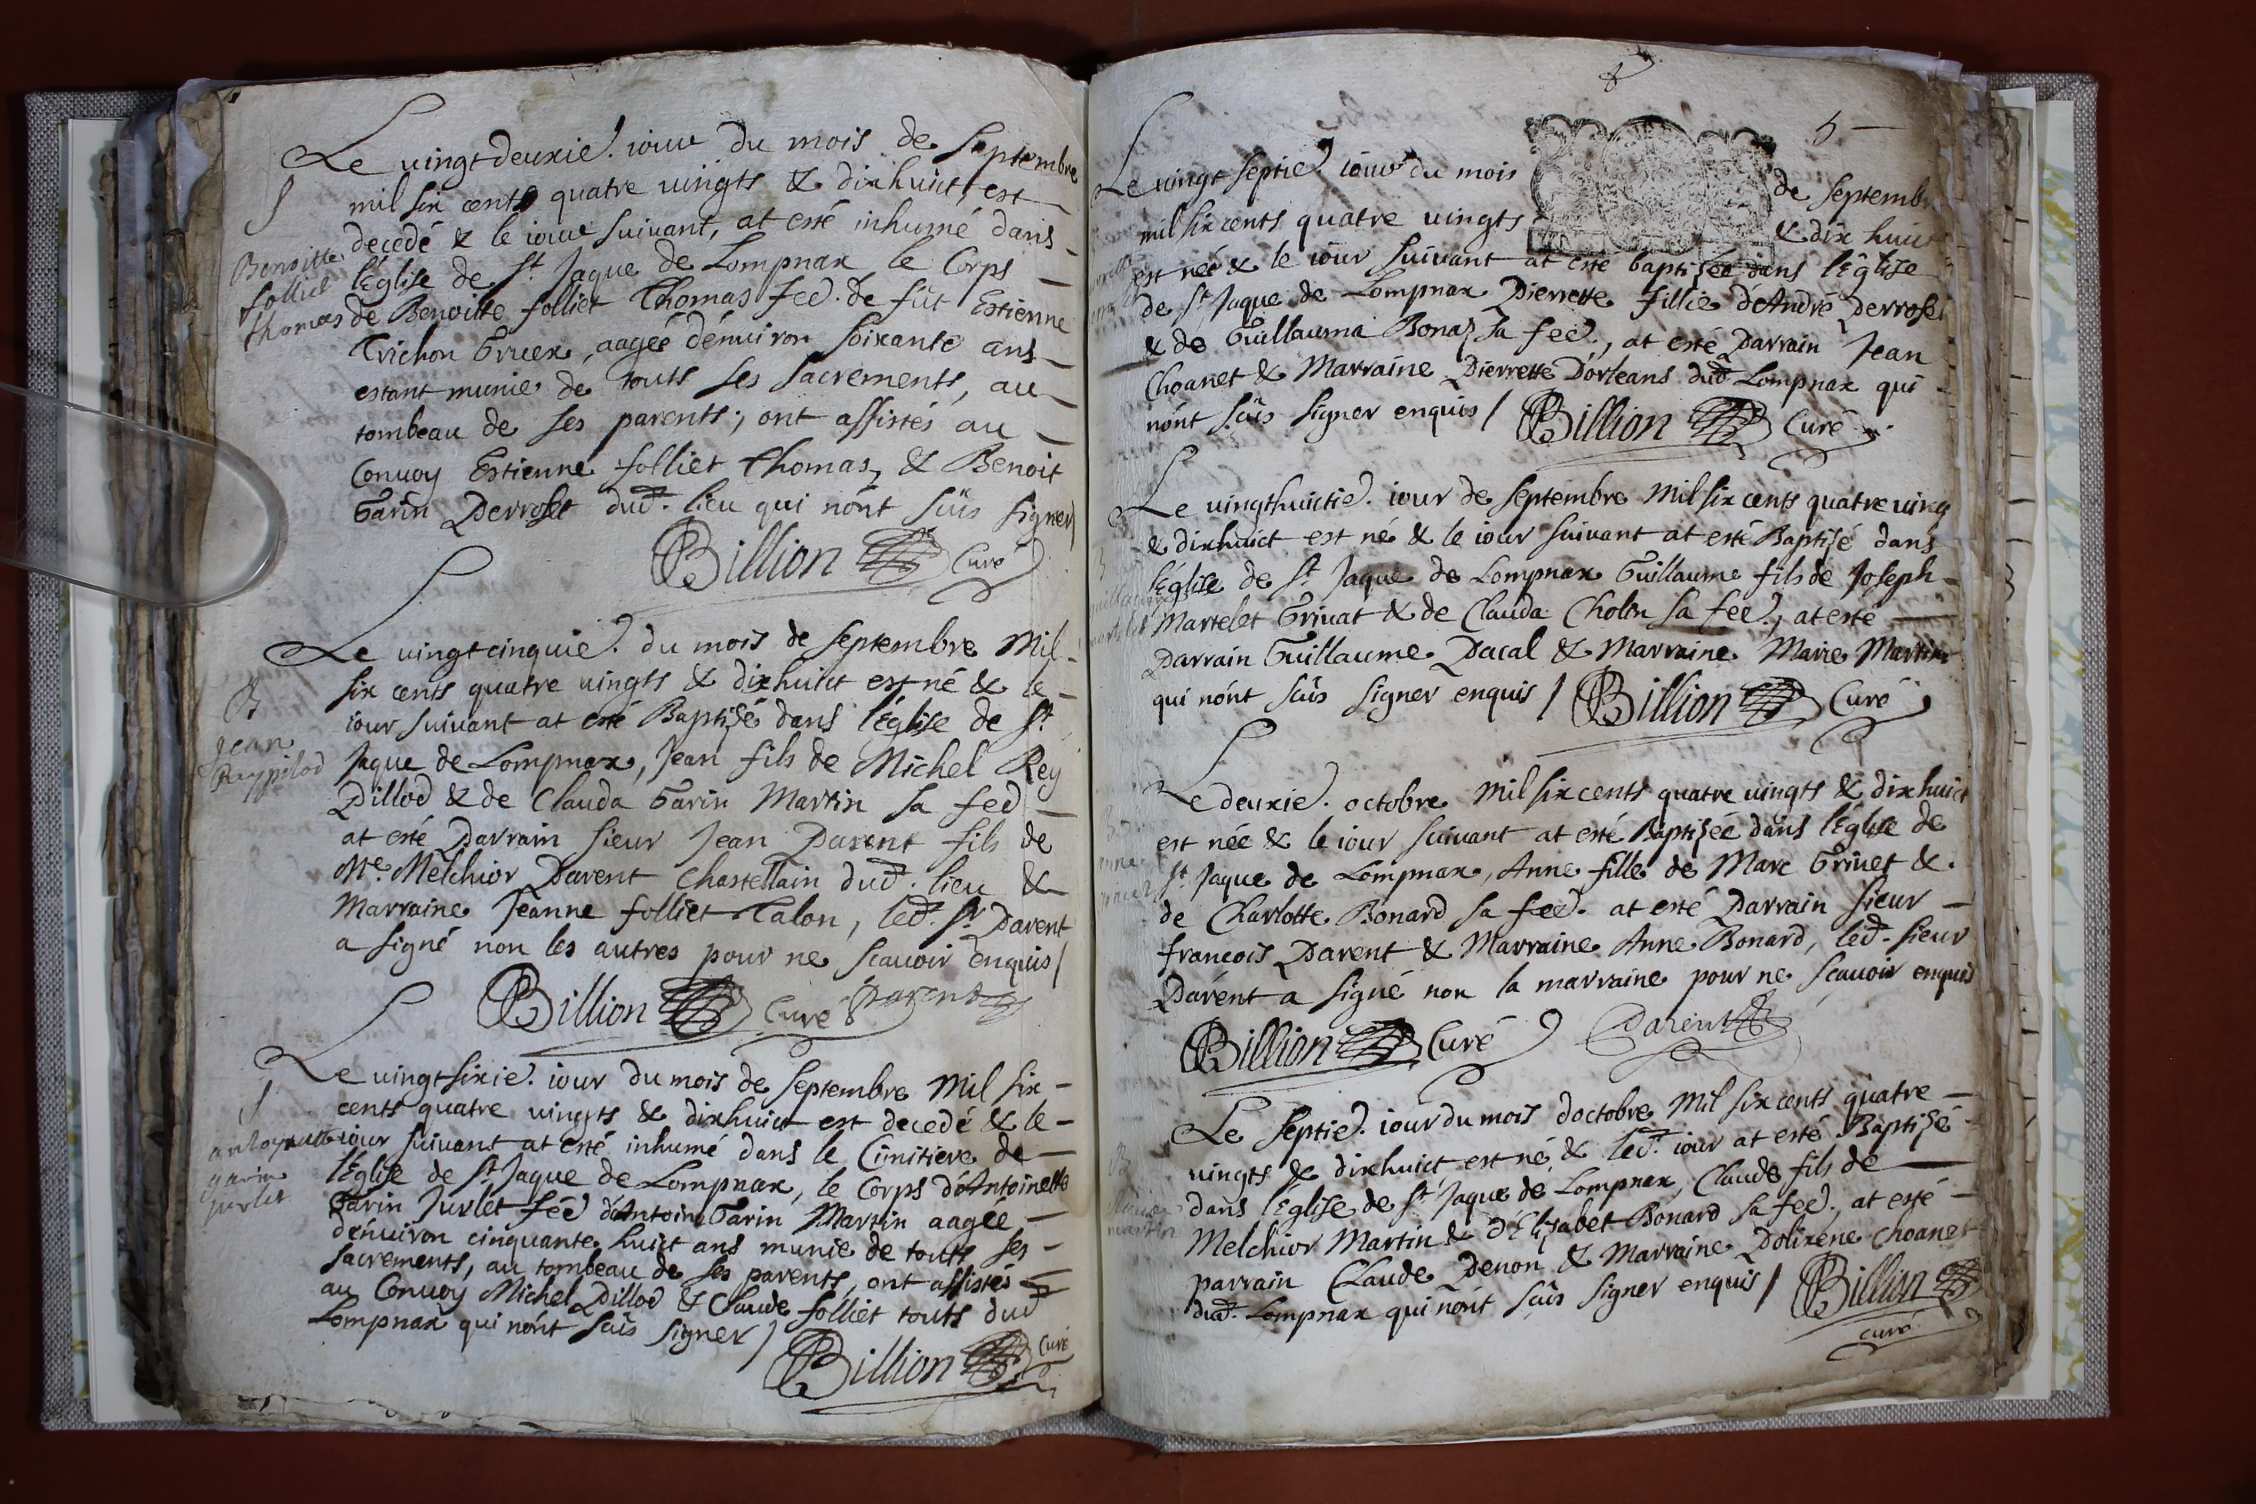 Le vingtdeuxie. iour du mois de Septembre
S
mil six cents quatre vingts & dixhuict est
decedé & le iour suivant, at esté inhumé dans
Benoitte
l'Eglise de St. Jaque de Lompnax le Corps
folliet
thomas
de Benoitte folliet Thomas fee. de fût Estienne
Trichon Gruex, aagée d'enuiron soixante ans
estant munie de touts ses sacrements, au
tombeau de ses parents; ont assistés au
Conuoy Estienne folliet Thomas, & Benoit
Garin Perroset dud. lieu qui n'ont sûs signer /
Billion Curé
Le vingtcinquie. du mois de septembre Mil
B
six cents quatre vingts & dixhuict est né & le
iour suivant at esté Baptizé dans l'église de St.
Jean
Reypilod
Jaque de Lompnax, Jean fils de Michel Rey
Pillod & de Clauda Garin Martin sa fee
at esté Parrain sieur Jean Parent fils de
Me. Melchior Parent Chastellain dud. lieu &
Marraine Jeanne folliet Talon, led. Sr. Parent
a signé non les autres pour ne scauoir enquis /
Billion Curé Parent
Le vingtsixie. iour du mois de septembre Mil six
S
cents quatre vingts & dixhuict est decedé & le
antoynatte
garin
jurlet
iour suivant at esté inhumé dans le Cimitiere de
l'Eglise de St. Jaque de Lompnax, le Corps d'Antoinette
Garin Jurlet fée d'Antoine Garin Martin aagée
d'enuiron cinquante huict ans munie de touts ses
sacrements, au tombeau de ses parents, ont assistés
au Conuoy Michel Pillod & Claude folliet touts dud
Lompnax qui n'ont sûs signer /
Billion Curé
5
Le vingt septie. iour du mois de Septemb
mil six cents quatre vingts & dix huict
est née & le iour suivant at esté baptizée dans l'Eglise
de St. Jaque de Lompnax Pierrette fillie d'André Perroset
& de Guillauma Bonaz sa fee., at esté Parrain Jean
Choanet & Marraine Pierrette D'orleans dud. Lompnax qui
n'ont sûs signer enquis / Billion Curé
Le vingthuictie. iour de septembre Mil six cents quatre ving
& dixhuict est né & le iour suivant at esté Baptizé dans
l'Eglise de St. Jaque de Lompnax Guillaume fils de Joseph
Martelet Griuat & de Clauda Cholin sa fee., at esté
Parrain Guillaume Pacal & Marraine Marie Martin
qui n'ont sûs signer enquis / Billion Curé
Le deuxie. octobre Mil six cents quatre vingts & dixhuict
est née & le iour suivant at esté Baptizée dans l'Eglise de
St. Jaque de Lompnax, Anne fille de Marc Griuet &
de Charlotte Bonard sa fee. at esté Parrain sieur
francois Parent & Marraine Anne Bonard, led. sieur
Parent a signé non la marraine pour ne sçauoir enquis
Billion Curé Parent
Le septie. iour du mois d'octobre Mil six cents quatre
vingts & dixhuict est né & led. iour at esté Baptizé
dans l'Eglise de St. Jaque de Lompnax, Claude fils de
martin
Melchior Martin & d'Elizabet Bonard sa fee., at esté
parrain Claude Penon & Marraine Polixene Choanet
dud. Lompnax qui n'ont sûs signer enquis / Billion
curé